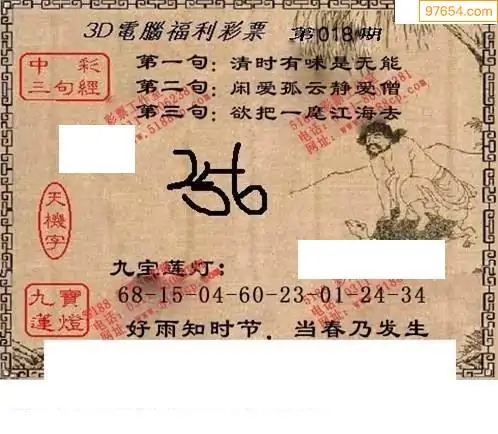 97654.com
3D電腦福利彩票 第018期
中彩
三句經
第一句:清时有味是无能
第二句:闲爱孤云静爱僧
第三句:欲把一麾江海去
256
天機字
九宝莲灯:
九寶
蓮燈
68-15-04-60-23-01-24-34
好雨知时节,当春乃发生